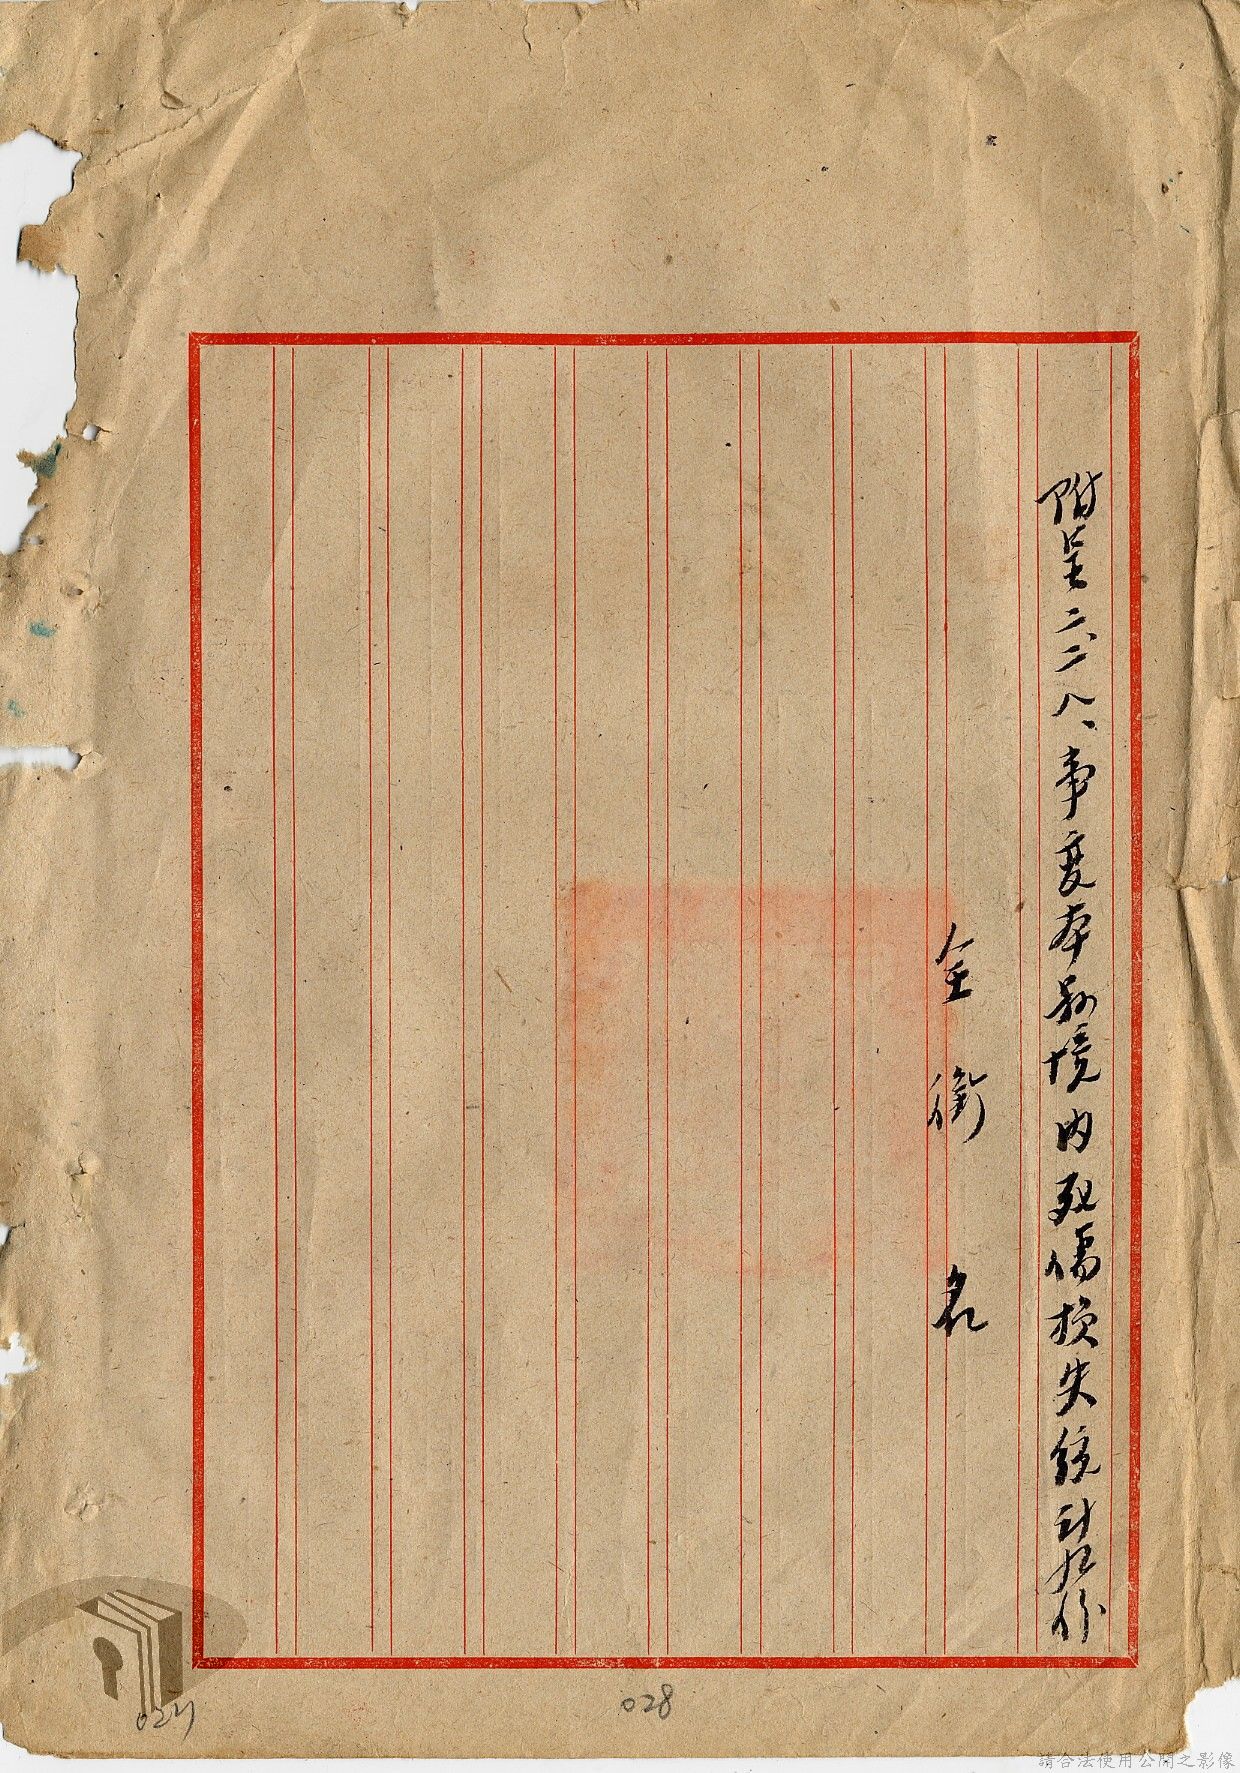 附呈二、二八、事變本縣境內死傷損失統計九份
全銜名
027
028
請合法使用公開之影像